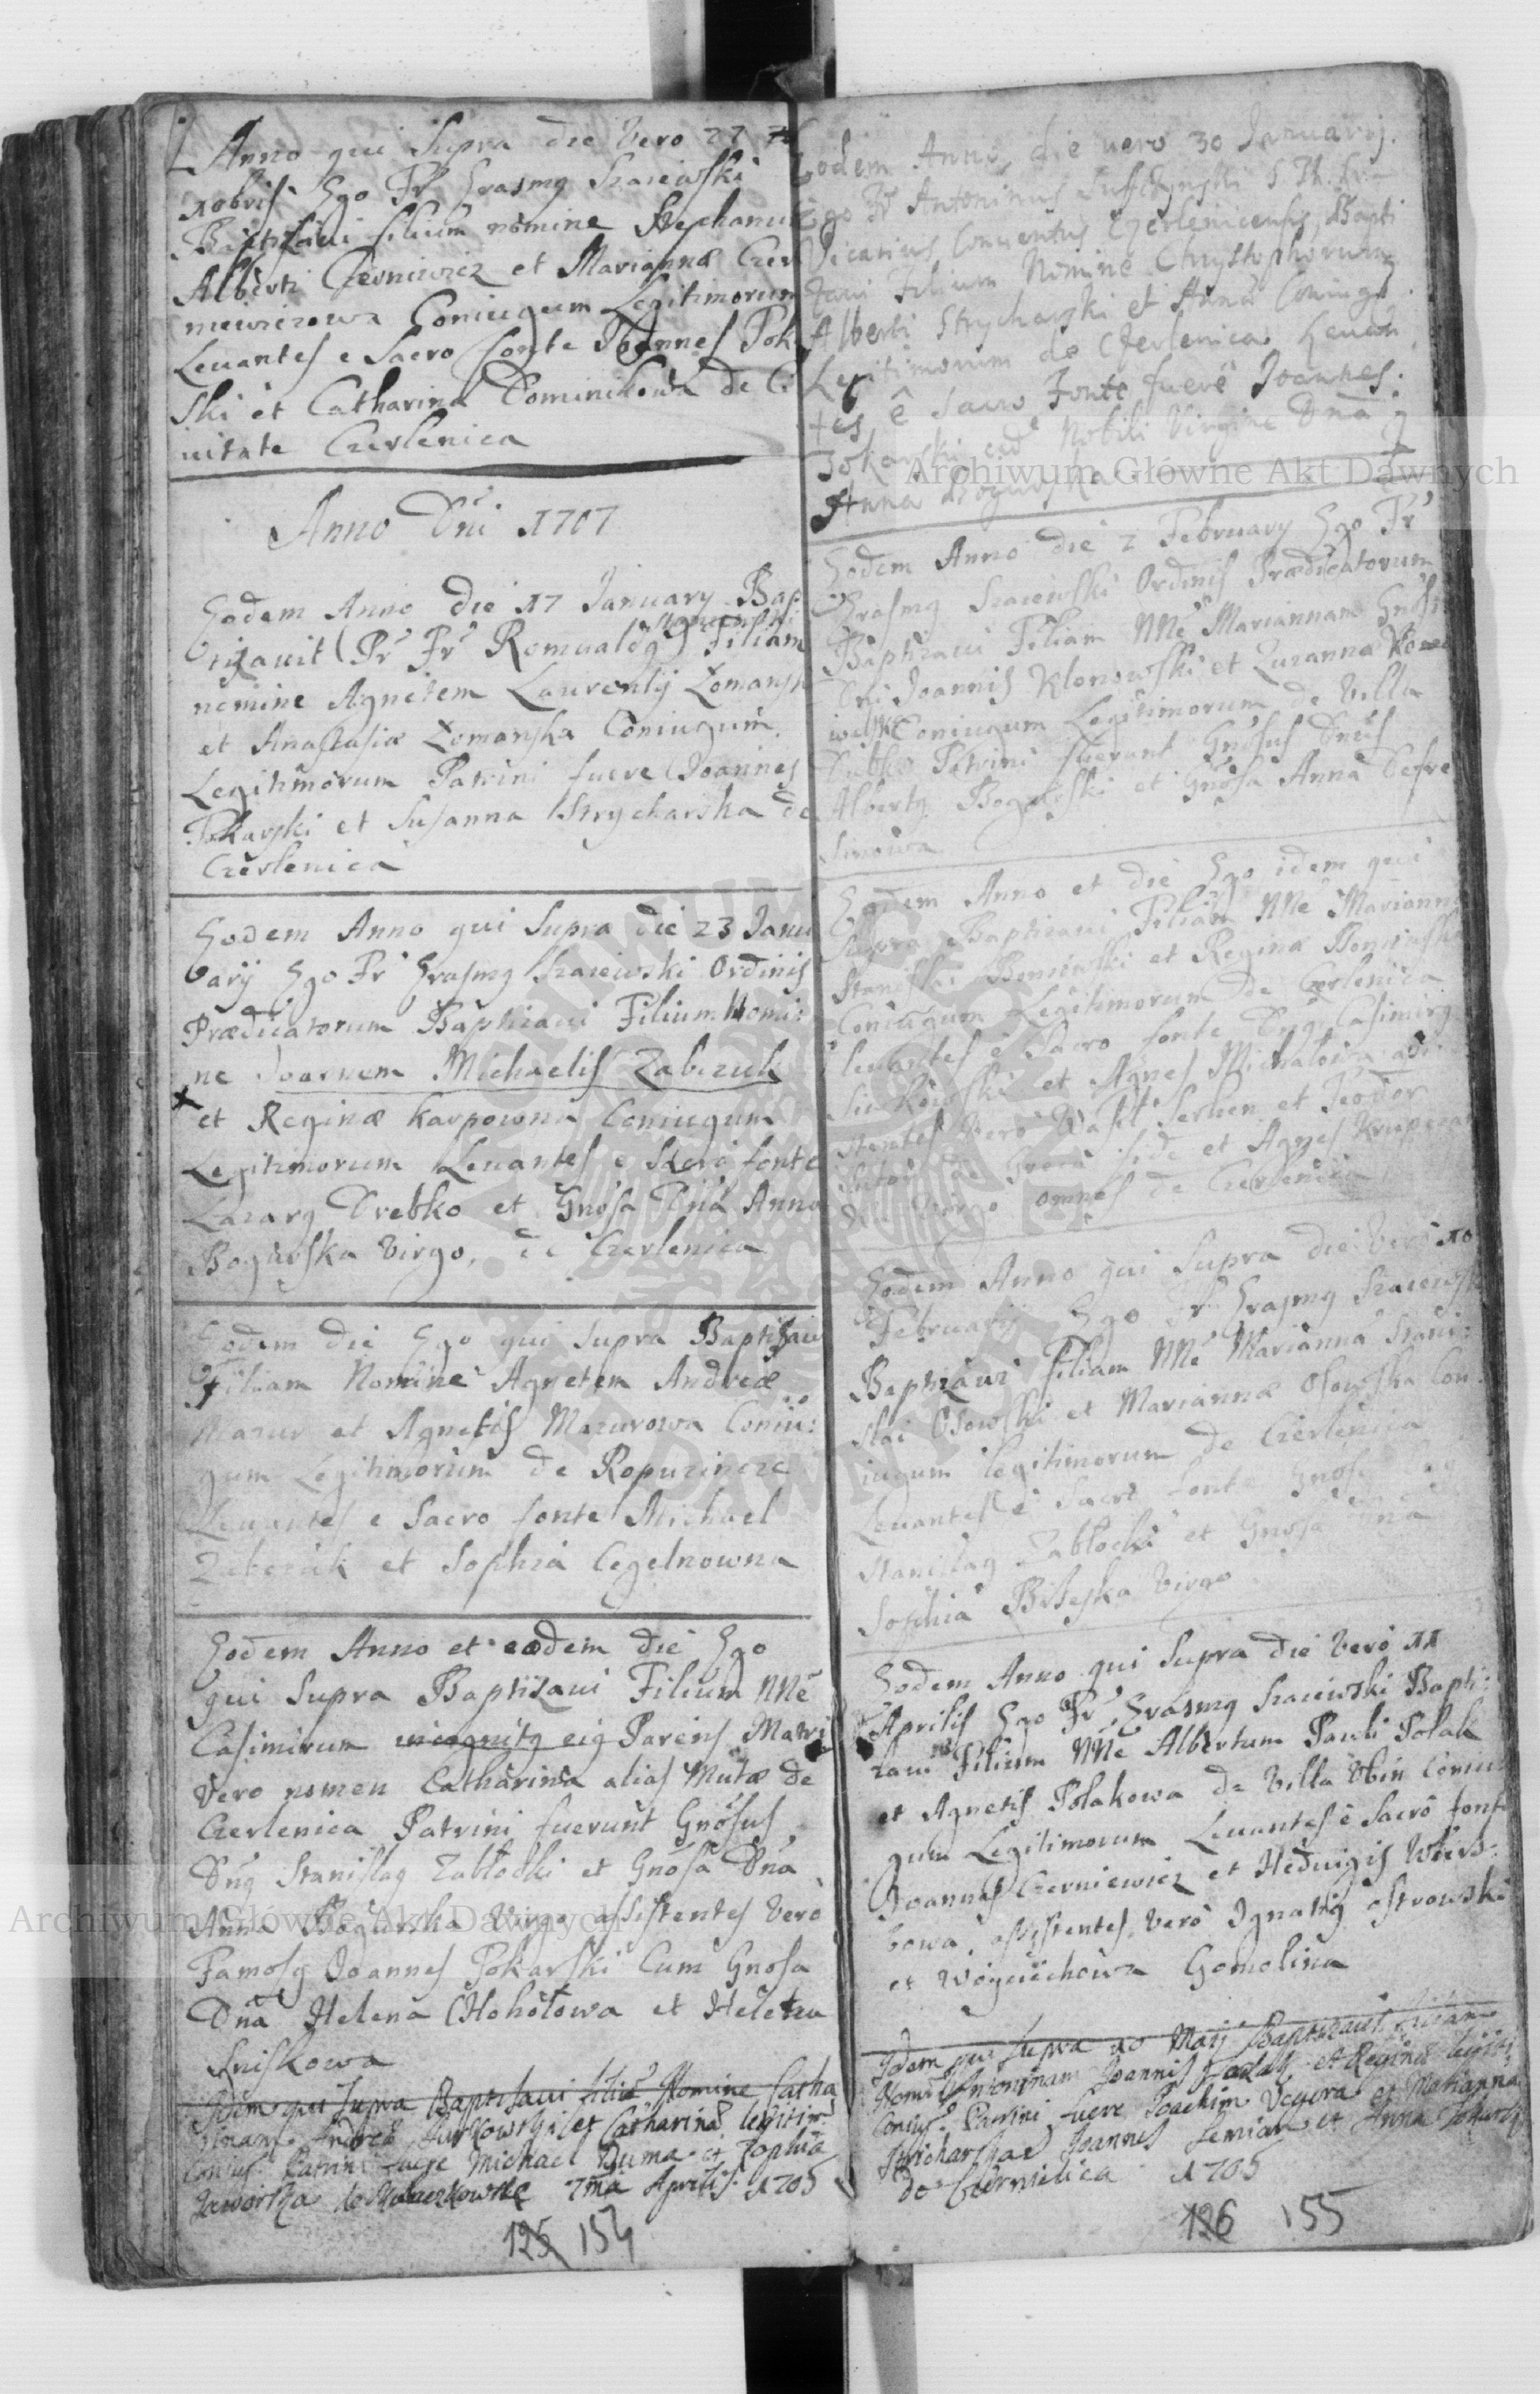 Anno qui Supra die Vero 27
xobris Ego Fr Erasmg Szaiewski
Baptizaui filium nomine Stephanum
Alberti Czerniewicz et Mariannæ Czer
niewiczowa Coniugum Legitimorum
Leuantes e Sacro fonte Joannes Pok
ski et Catharina Dominikowa de Ci
uitate Czerlenica
Anno Dni 1707
Eodem Anno die 17 January Bap
tizauit Pr Fr Romualdg Filiam
nomine Agnetem Laurentij Lomansk
et Anastasiæ Lomanska Coniugum
Legitimorum Patrini fuere Joannes
Pokarski et Susanna Strycharska de
Czerlenica
Eodem Anno qui Supra die 23 Janu
arij Ego Fr Erasmg Szaiewski Ordinis
Prædicatorum Baptizaui Filium Nomi:
ne Joannem Michaelis Zabczuk
et Reginæ Karpowna Coniugum
Legitimorum Leuantes e Sacro fonte
Lazarg Drebko et Gnosa Dna Anna
Bogurska Virgo, de Czerlenica
Eodem die Ego qui supra Baptizaui
Filiam Nomine Agnetem Andreæ
Mazur et Agnetis Mazurowa Coniu:
gum Legitimorum de Ropuzincze
Leuantes e Sacro fonte Michael
Zabczuk et Sophia Cegelnowna
Eodem Anno et eodem die Ego
qui supra Baptizaui Filium NNe
Casimirum incognitg eig Parens Matri
Vero nomen Catharina alias Mutæ de
Czerlenica Patrini fuerunt Gnosus
Dng Stanislag Zablocki et Gnosa Dna
Anna Bogurska Virgo assistentes Vero
Famosg Joannes Pokarski Cum Gnosa
Dna Helena Chohołowa et Helena
Luiskowa
Idem qui supra Baptisaui filia Nomine Catha
rinam Andreæ Turkowski et Catharina legitim
Coniug Patrini fuere Michael Duma et Zophia
Jaworska 7ma Aprilis 1705
125 154
Eodem Anno die uero 30 Januarij.
Ego Fr Antoninus S Th.
Vicarius Conuentus Czerlenicensis Bapti
zaui filium Nomine Chrystophorum
Alberti Strycharski et Annæ Coniug
Legitimorum de Czerlenica Leuan
tes ê Sacro Fonte fuere Joannes
Pokarski Nobili Virgine Dna
Anna Bogurska
Eodem Anno die 2 February Ego Fr
Erasmg Szaiewski Ordinis Prædicatorum
Baptizaui Filiam NNe Mariannam Gnosi
Dni Joannis Klonowski et Zuzanna
Coniugum Legitimorum de Villa
Dubko Patrini fuerunt Gnosus Dnus
Albertg Bogurski et Gnosa Anna
Eodem Anno et die Ego idem qui
Supra Baptizaui Filiam NNe Mariann
Stanislai et Regina
Coniugum Legitimorum de Czerlenica
leuantes e Sacro fonte Dng Casimirg
et Agnes Michałowa assi
stentes Vero Wasil et Teodor
fide et Agnes
Virgo omnes de Czerlenica
Eodem Anno qui Supra die Vero 10
Februarij Ego Fr Erasmg Szaiewski
Baptizaui Filiam NNe Marianna Stani:
slai Osowski et Mariannæ Osowska Con
iugum legitimorum de Czerlenica
Leuantes e Sacro fonte Gnosus
Stanislag Zabłocki et Gnosa Dna
Sophia Virgo
Eodem Anno qui Supra die Vero 11
Aprilis Ego Fr Erasmg Szaiewski Bapti:
zaui Filium NNe Albertum Pauli Polak
et Agnetis Polakowa de Villa Ubin Coniu
gum Legitimorum Leuantes e Sacro fonte
Joannes Czerniewicz et Heduigis Wierz:
bowa, assistentes Vero Ignatig Ostrowski
et Woyciechowa Gomolina
Idem qui supra 10 Maij Baptizaui filiam
Nomi Antoninam Joannis et Regina legiti
Coniug Patrini fuere Joachim et Marianna
Stricharska Joannes et Anna
de Czernielica 1705
126 155
Archiwum Główne Akt Dawnych
Archiwum Główne Akt Dawnych